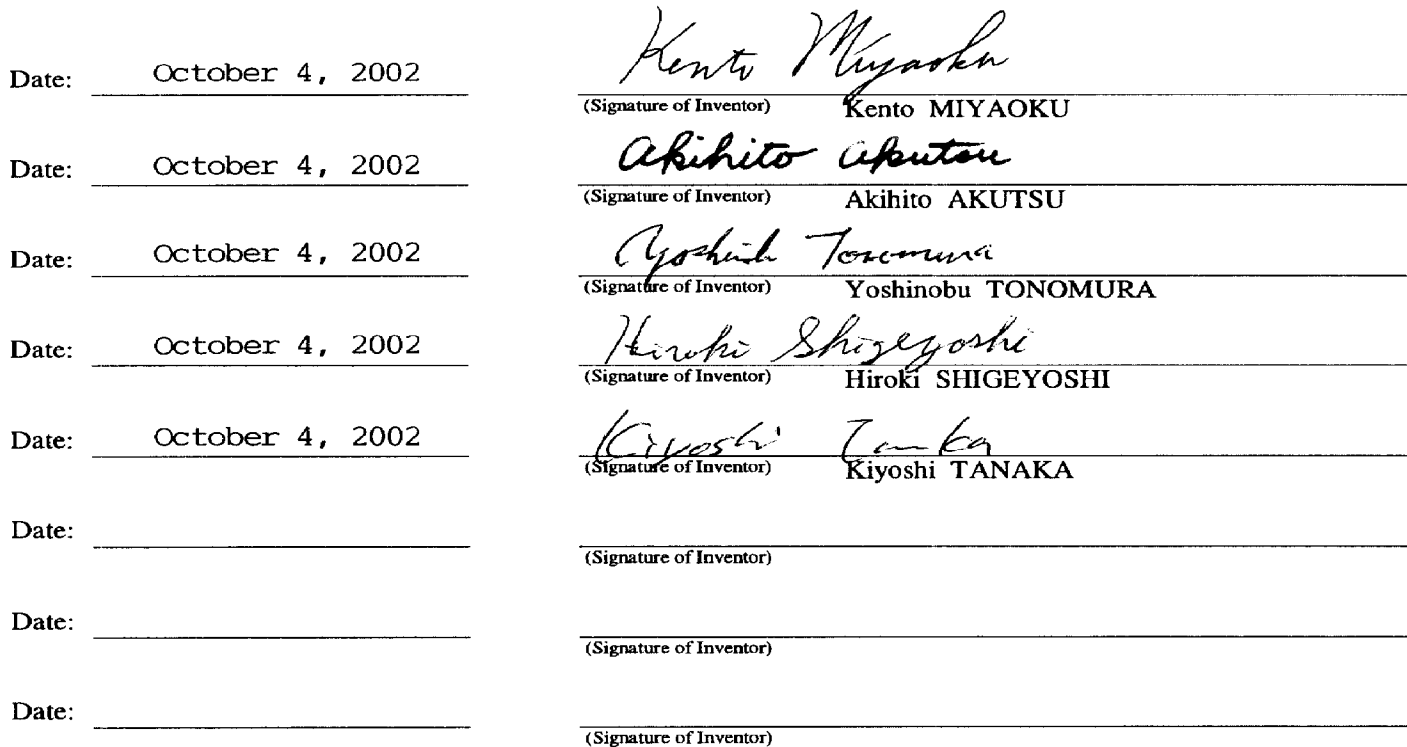 Date: October 4, 2002 Kento Miyaoku
(Signature of Inventor) Kento MIYAOKU
Date: October 4, 2002 Akihito Akutsu
(Signature of Inventor) Akihito AKUTSU
Date: October 4, 2002 Tonomura
(Signature of Inventor) Yoshinobu TONOMURA
Date: October 4, 2002 Hiroki Shigeyoshi
(Signature of Inventor) Hiroki SHIGEYOSHI
Date: October 4, 2002 Kiyoshi Tanaka
(Signature of Inventor) Kiyoshi TANAKA
Date:
(Signature of Inventor)
Date:
(Signature of Inventor)
Date:
(Signature of Inventor)